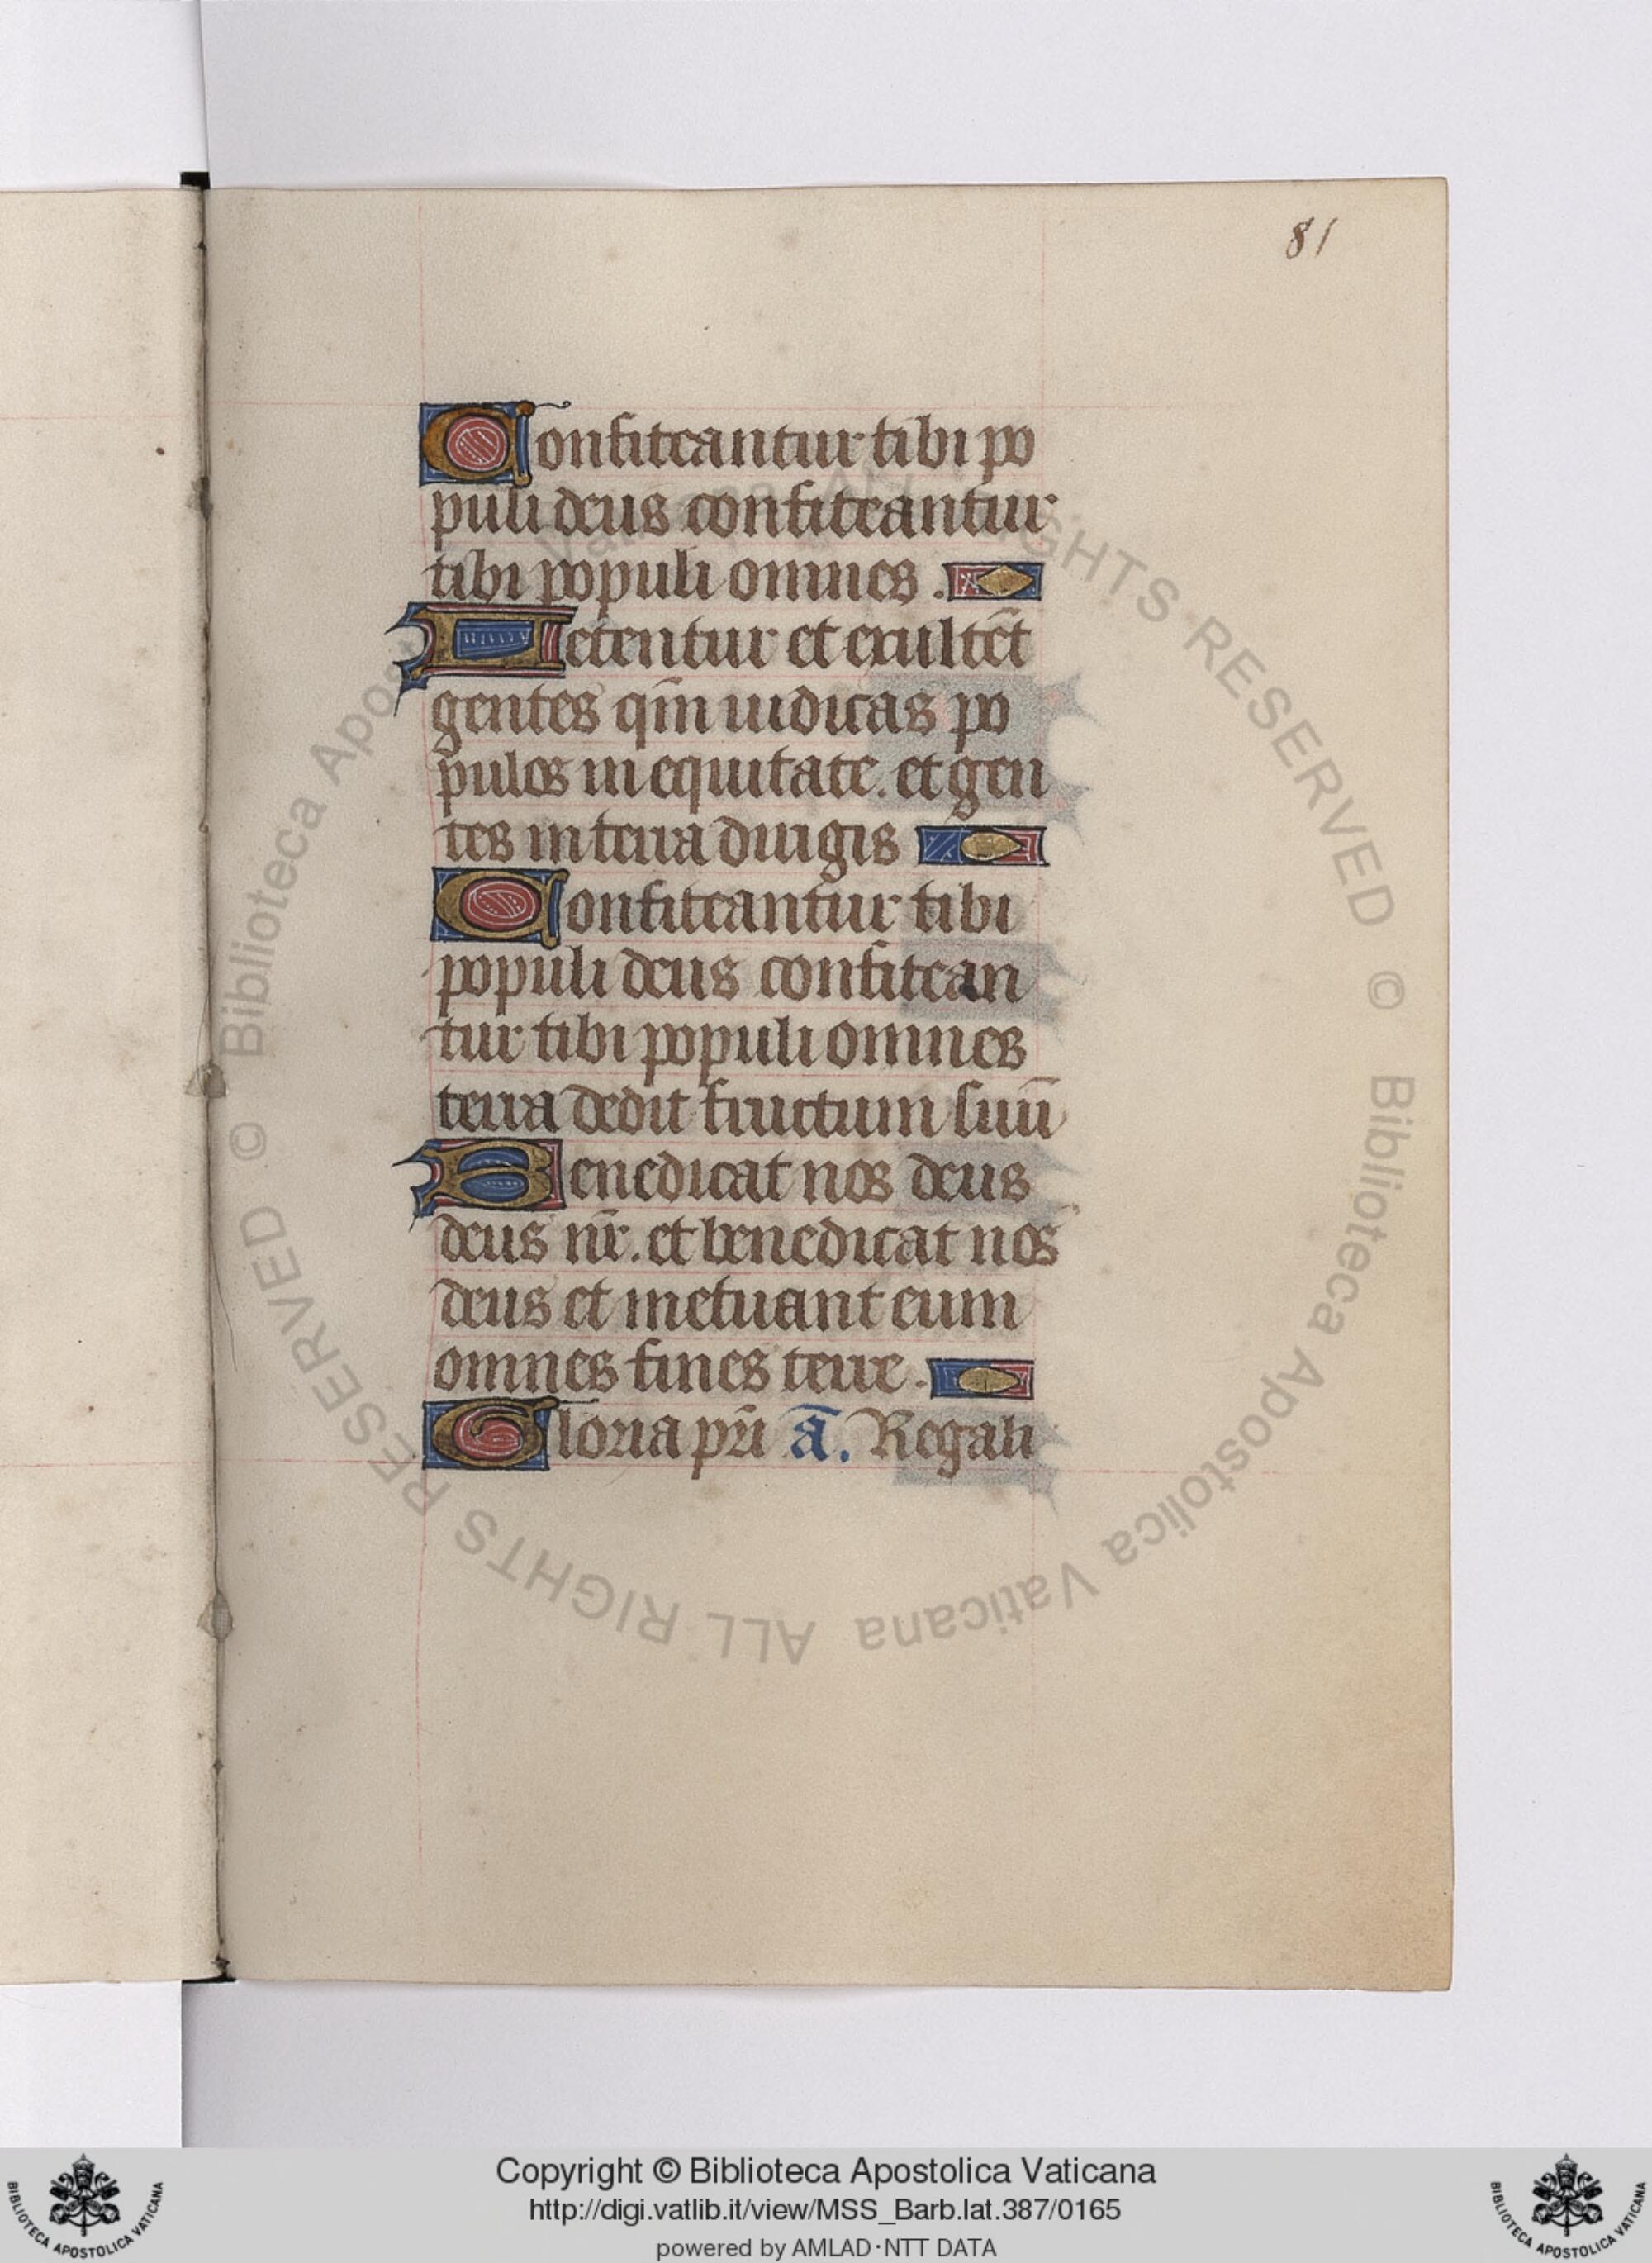 81
Confiteantur tibi po
puli deus confiteantur
tibi populi omnes .
Letentur et exultēt
gentes qm̄ iudicas po
pulos in equitate. et gen
tes in terra dirigis
Confiteantur tibi
populi deus confitean
tur tibi populi omnes
terra dedit fructum suū
Benedicat nos deus
deus nr̄. et benedicat nos
deus et metuant eum
omnes fines terre .
Gloria pr̄i ā. Regali
© Biblioteca Apostolica Vaticana ALL RIGHTS RESERVED
© Biblioteca Apostolica Vaticana ALL RIGHTS RESERVED
Copyright © Biblioteca Apostolica Vaticana
http://digi.vatlib.it/view/MSS_Barb.lat.387/0165
powered by AMLAD·NTT DATA
BIBLIOTECA APOSTOLICA VATICANA
BIBLIOTECA APOSTOLICA VATICANA